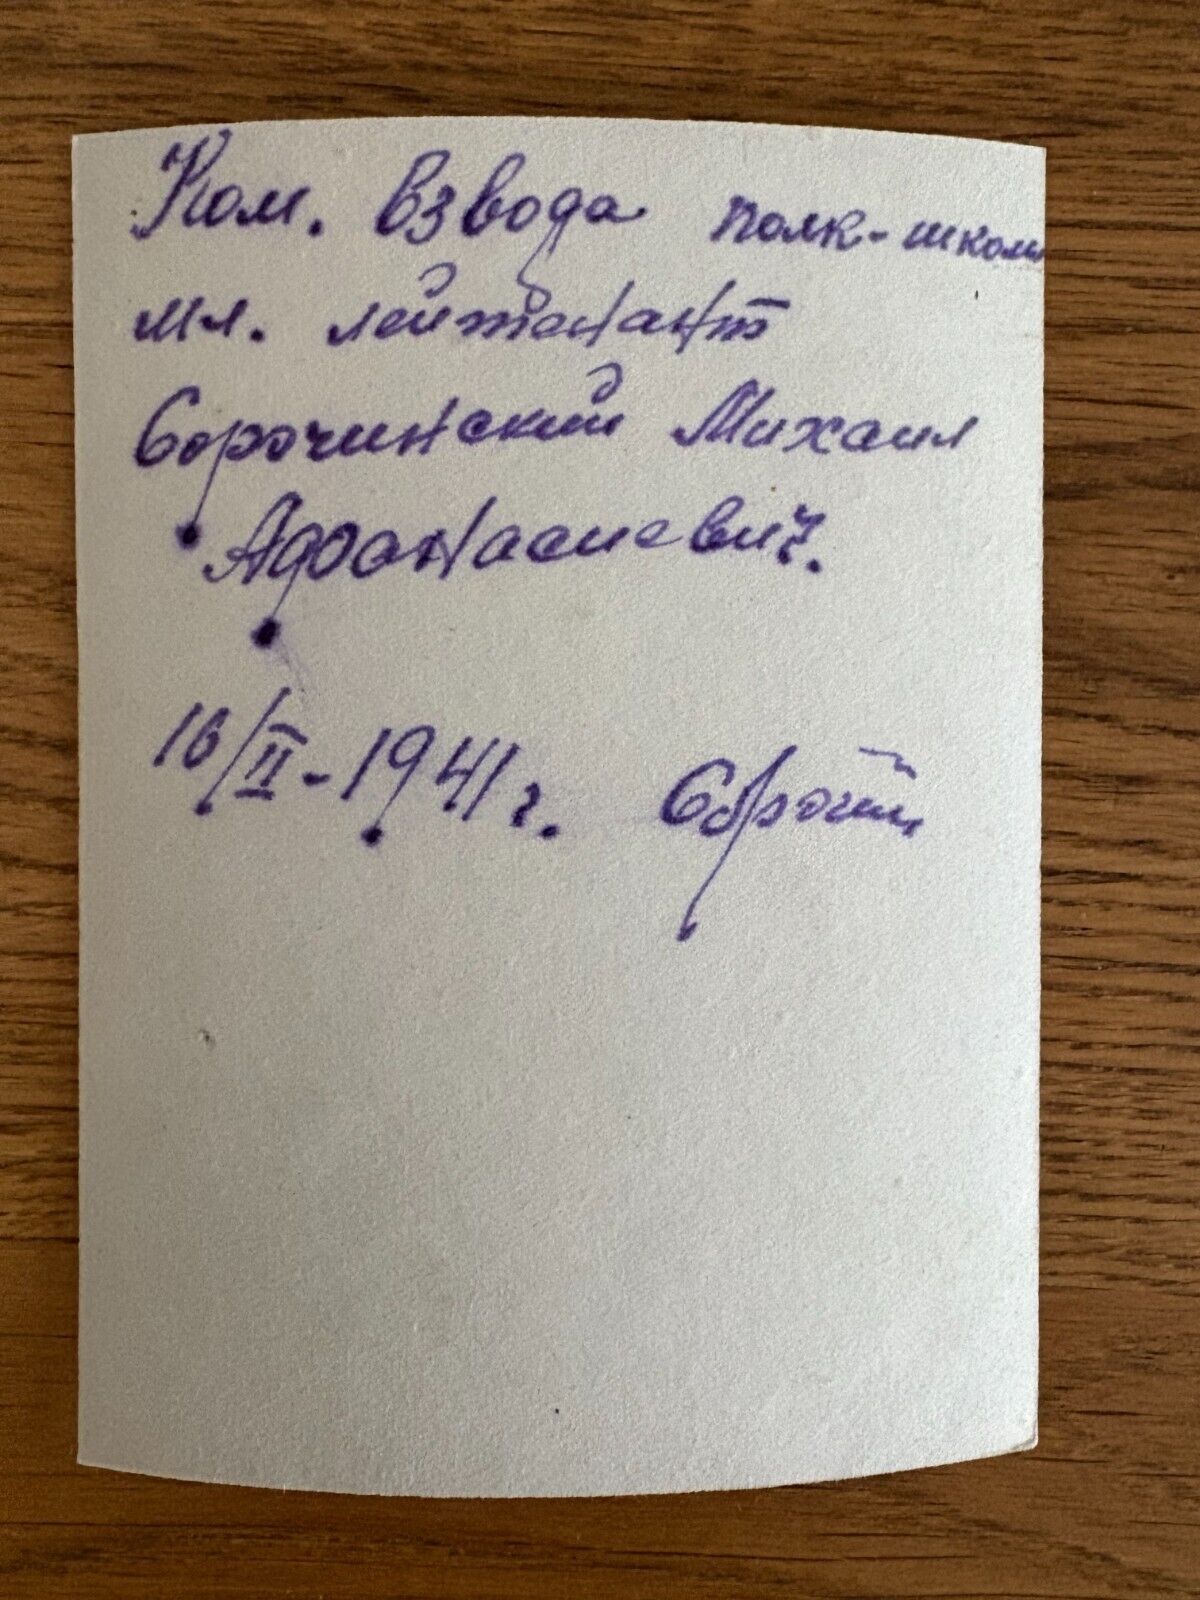 Ком. взвода полк-школы
мл. лейтенант
Сорочинский Михаил
Афонасиевич.
16/II-1941 г.